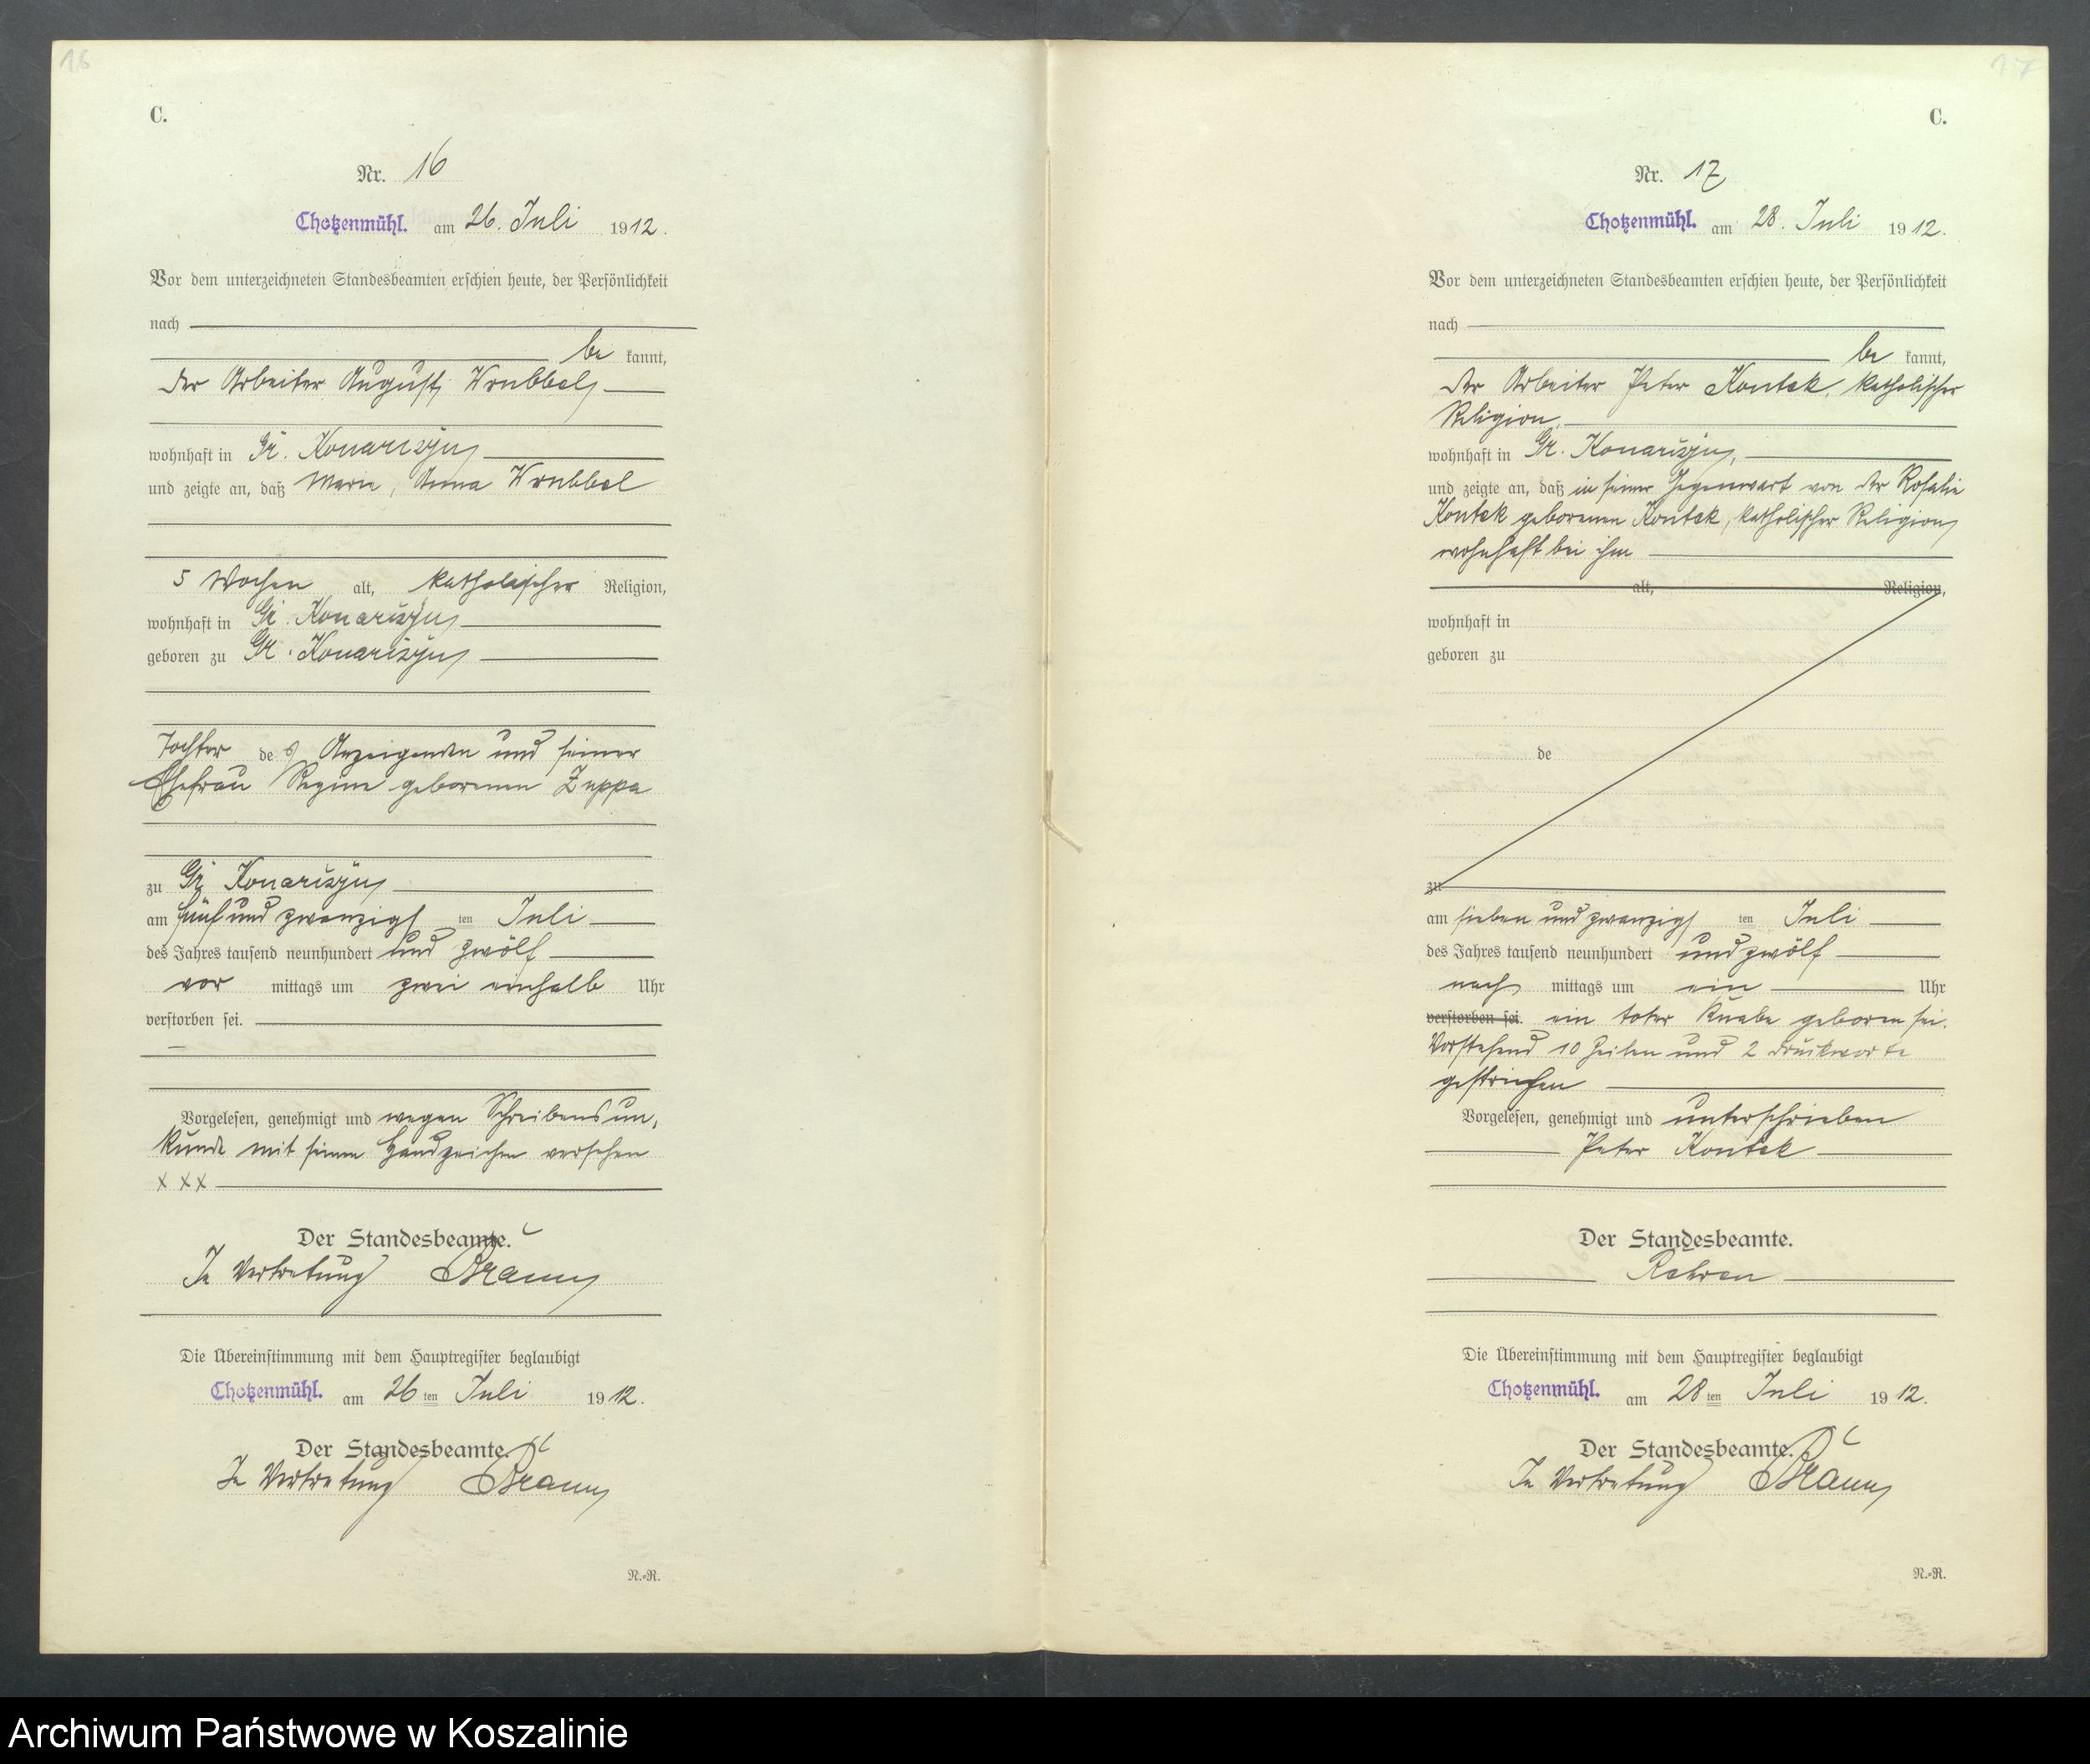 16
C.
Nr. 16
Chotzenmühl. am 26. Juli 1912.
Vor dem unterzeichneten Standesbeamten erschien heute, der Persönlichkeit
nach
be kannt,
der Arbeiter August Wrubbel,
wohnhaft in Gr. Konarczyn,
und zeigte an, daß Marie, Anna Wrubbel
5 Wochen alt, katholischer Religion,
wohnhaft in Gr. Konarczyn,
geboren zu Gr. Konarczyn,
Tochter des Anzeigenden und seiner
Ehefrau Regine geborenen Zuppa
zu Gr. Konarczyn,
am fünf und zwanzigsten Juli
des Jahres tausend neunhundert und zwölf
vor mittags um zwei einhalb Uhr
verstorben sei.
Vorgelesen, genehmigt und wegen Schreibensun-
kunde mit seinem Handzeichen versehen
x x x
Der Standesbeamte.
In Vertretung Braun
Die Übereinstimmung mit dem Hauptregister beglaubigt
Chotzenmühl. am 26 ten Juli 1912.
Der Standesbeamte.
In Vertretung Braun
N.-R.
17
C.
Nr. 17
Chotzenmühl. am 28. Juli 1912.
Vor dem unterzeichneten Standesbeamten erschien heute, der Persönlichkeit
nach
be kannt,
der Arbeiter Peter Kontek, katholischer
Religion,
wohnhaft in Gr. Konarczyn,
und zeigte an, daß in seiner Gegenwart von der Rosalie
Kontek geborenen Kontek, katholischer Religion,
wohnhaft bei ihm
alt, Religion,
wohnhaft in
geboren zu
de
zu
am sieben und zwanzigsten Juli
des Jahres tausend neunhundert und zwölf
nach mittags um ein Uhr
verstorben sei. ein toter Knabe geboren sei.
Vorstehend 10 Zeilen und 2 Druckworte
gestrichen
Vorgelesen, genehmigt und unterschrieben
Peter Kontek
Der Standesbeamte.
Rehren
Die Übereinstimmung mit dem Hauptregister beglaubigt
Chotzenmühl. am 28 ten Juli 1912.
Der Standesbeamte.
In Vertretung Braun
N.-R.
Archiwum Państwowe w Koszalinie